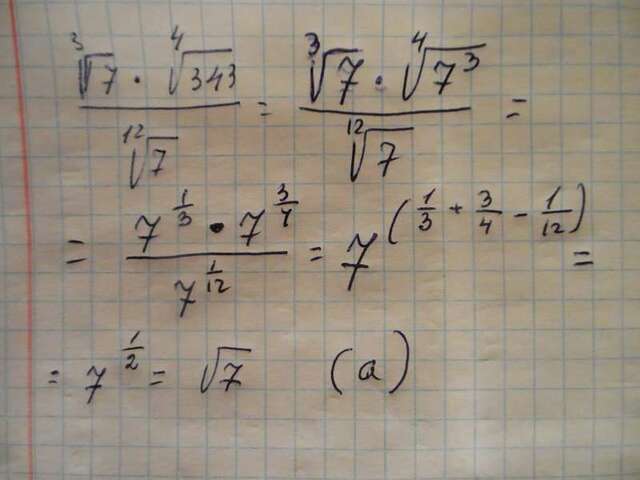 ∛7 · ∜343 / ¹²√7 = ∛7 · ∜7³ / ¹²√7 =
= 7^(1/3) · 7^(3/4) / 7^(1/12) = 7^(1/3 + 3/4 − 1/12) =
= 7^(1/2) = √7 (a)